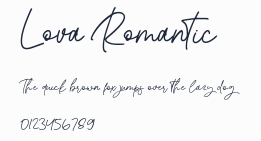 Lova Romantic
The quick brown fox jumps over the lazy dog
0123456789